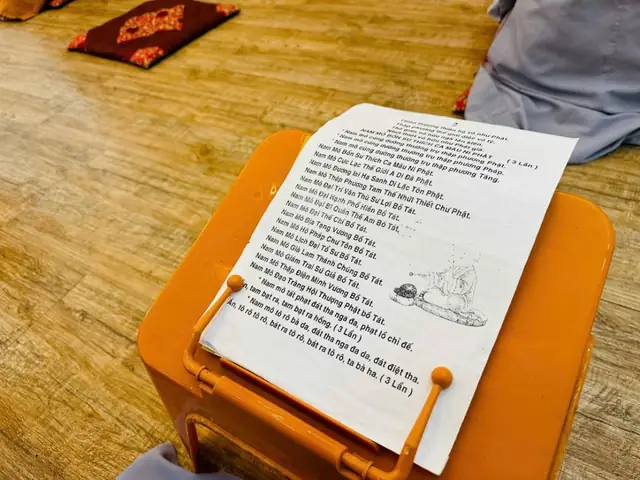 2
Thiên thượng thiên hạ vô như Phật.
Thập phương thế giới diệc vô tỷ.
Thế gian sở hữu ngã tận kiến.
Nhứt thiết vô hữu như Phật giả.
NAM MÔ BỔN SƯ THÍCH CA MÂU NI PHẬT ( 3 Lần )
* Nam mô cúng dường thường trụ thập phương Phật.
Nam mô cúng dường thường trụ thập phương Pháp.
Nam mô cúng dường thường trụ thập phương Tăng.
Nam Mô Bổn Sư Thích Ca Mâu Ni Phật.
Nam Mô Cực Lạc Thế Giới A Di Đà Phật.
Nam Mô Đương lai Hạ Sanh Di Lặc Tôn Phật.
Nam Mô Thập Phương Tam Thế Nhứt Thiết Chư Phật.
Nam Mô Đại Trí Văn Thù Sư Lợi Bồ Tát.
Nam Mô Đại Hạnh Phổ Hiền Bồ Tát.
Nam Mô Đại Bi Quán Thế Âm Bồ Tát.
Nam Mô Đại Thế Chí Bồ Tát.
Nam Mô Địa Tạng Vương Bồ Tát.
Nam Mô Hộ Pháp Chư Tôn Bồ Tát.
Nam Mô Lịch Đại Tổ Sư Bồ Tát.
Nam Mô Già Lam Thánh Chúng Bồ Tát.
Nam Mô Giám Trai Sứ Giả Bồ Tát.
Nam Mô Thập Điện Minh Vương Bồ Tát.
Nam Mô Đạo Tràng Hội Thượng Phật bồ Tát.
* Nam mô tát phạt đát tha nga đa, phạt lồ chỉ đế.
Án, tam bạt ra, tam bạt ra hồng. ( 3 Lần )
* Nam mô tô rô bà da, đát tha nga đa da, đát điệt tha.
Án, tô rô tô rô, bát ra tô rô, bát ra tô rô, ta bà ha. ( 3 Lần )